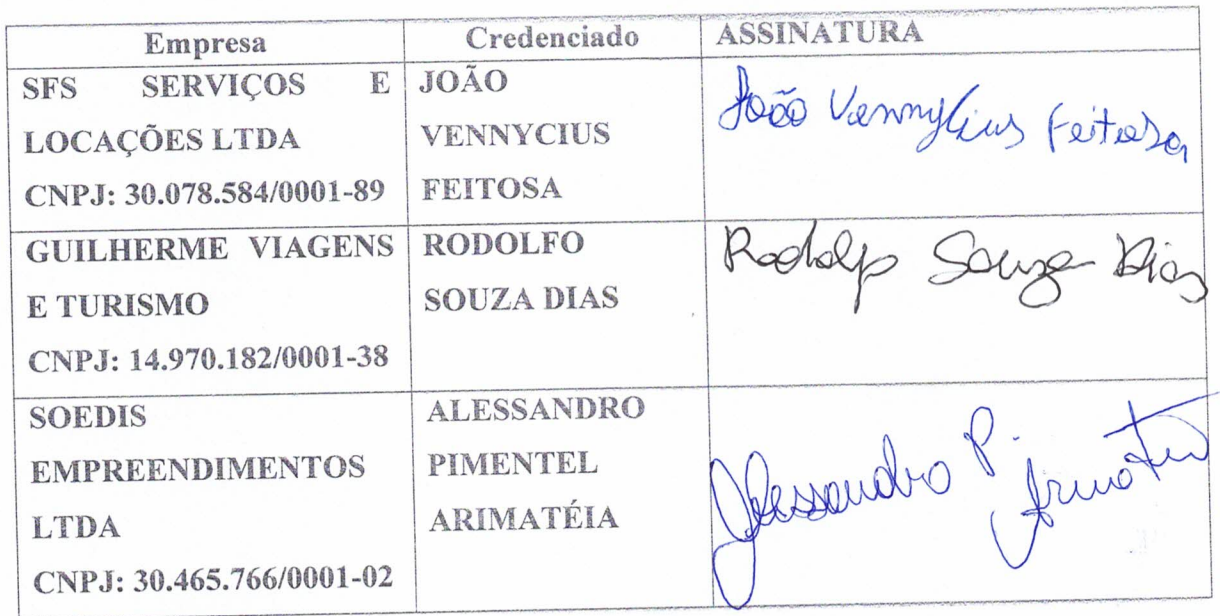 Empresa Credenciado ASSINATURA
SFS SERVIÇOS E
LOCAÇÕES LTDA
CNPJ: 30.078.584/0001-89
JOÃO
VENNYCIUS
FEITOSA
João Vennycius Feitosa
GUILHERME VIAGENS
E TURISMO
CNPJ: 14.970.182/0001-38
RODOLFO
SOUZA DIAS
Rodolfo Souza Dias
SOEDIS
EMPREENDIMENTOS
LTDA
CNPJ: 30.465.766/0001-02
ALESSANDRO
PIMENTEL
ARIMATÉIA
Alessandro P.